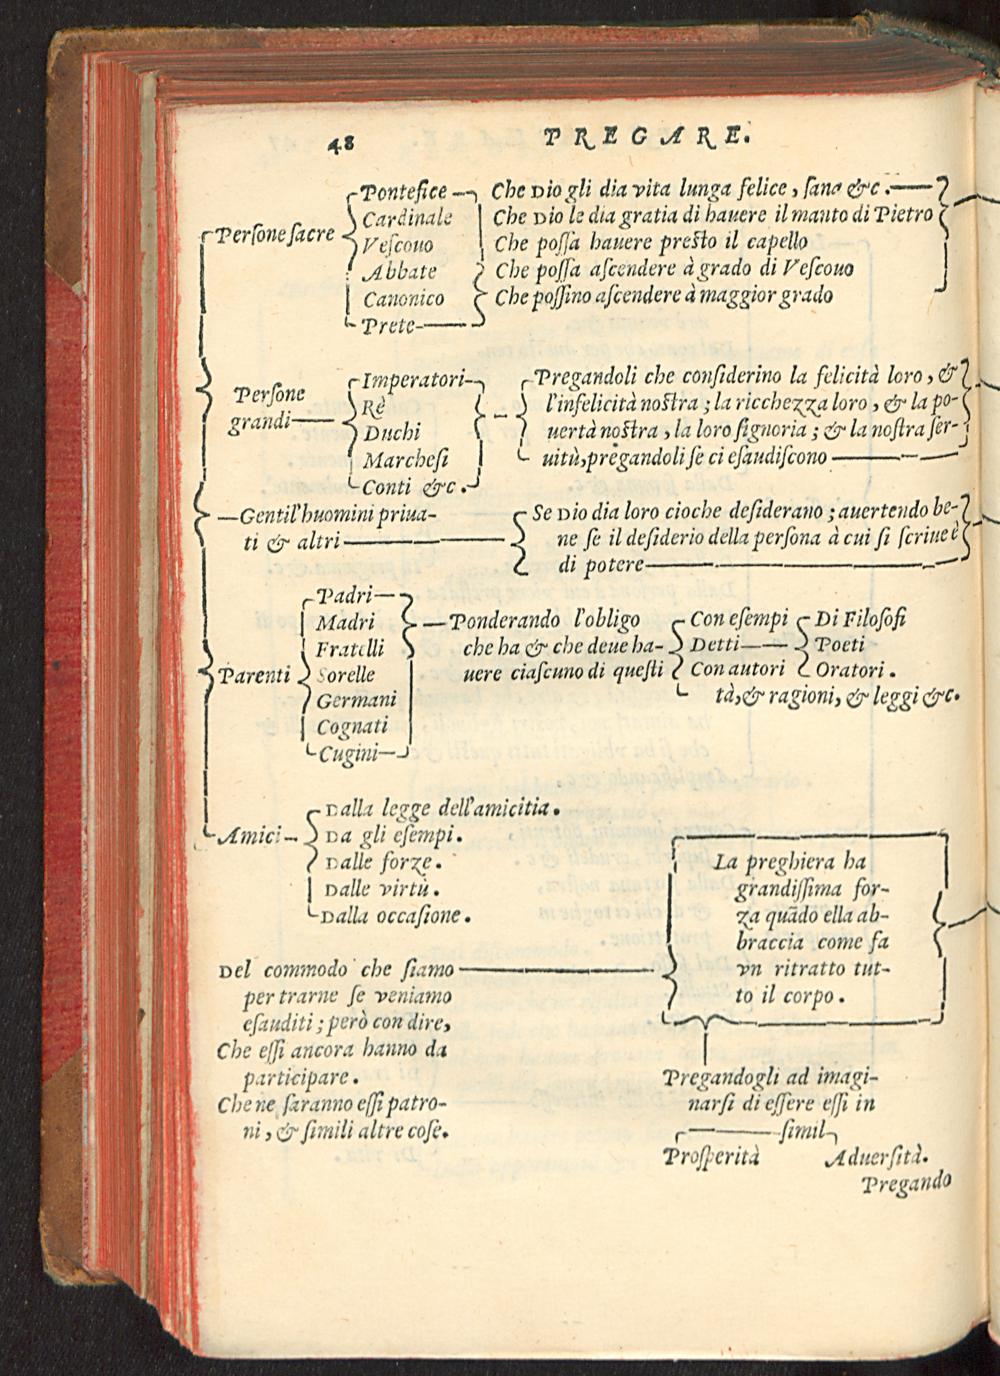 48 PREGARE.
Pontefice Che Dio gli dia vita lunga felice, ſana &c.
Cardinale Che Dio le dia gratia di hauere il manto di Pietro
Perſone ſacre Veſcouo Che poſſa hauere preſto il capello
Abbate Che poſſa aſcendere à grado di Veſcouo
Canonico Che poſſino aſcendere à maggior grado
Prete
Perſone grandi
Imperatori
Rè
Duchi
Marcheſi
Conti &c.
Pregandoli che conſiderino la felicità loro, &
l'infelicità noſtra; la ricchezza loro, & la po-
uertà noſtra, la loro ſignoria; & la noſtra ſer-
uitù, pregandoli ſe ci eſaudiſcono
Gentil'huomini priua-
ti & altri
Se Dio dia loro cioche deſiderano; auertendo be-
ne ſe il deſiderio della perſona à cui ſi ſcriue è
di potere
Parenti
Padri
Madri
Fratelli
Sorelle
Germani
Cognati
Cugini
Ponderando l'obligo
che ha & che deue ha-
uere ciaſcuno di queſti
Con eſempi
Detti
Con autori
tà, & ragioni, & leggi &c.
Di Filoſofi
Poeti
Oratori.
Amici
Dalla legge dell'amicitia.
Da gli eſempi.
Dalle forze.
Dalle virtù.
Dalla occaſione.
Del commodo che ſiamo
per trarne ſe veniamo
eſauditi; però con dire,
Che eſſi ancora hanno da
participare.
Che ne ſaranno eſſi patro-
ni, & ſimili altre coſe.
La preghiera ha
grandiſſima for-
za quãdo ella ab-
braccia come fa
vn ritratto tut-
to il corpo.
Pregandogli ad imagi-
narſi di eſſere eſſi in
ſimil
Proſperità Aduerſità.
Pregando